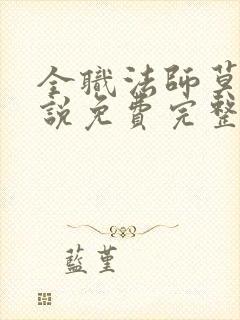 全職法師
說免費完整
藍堇